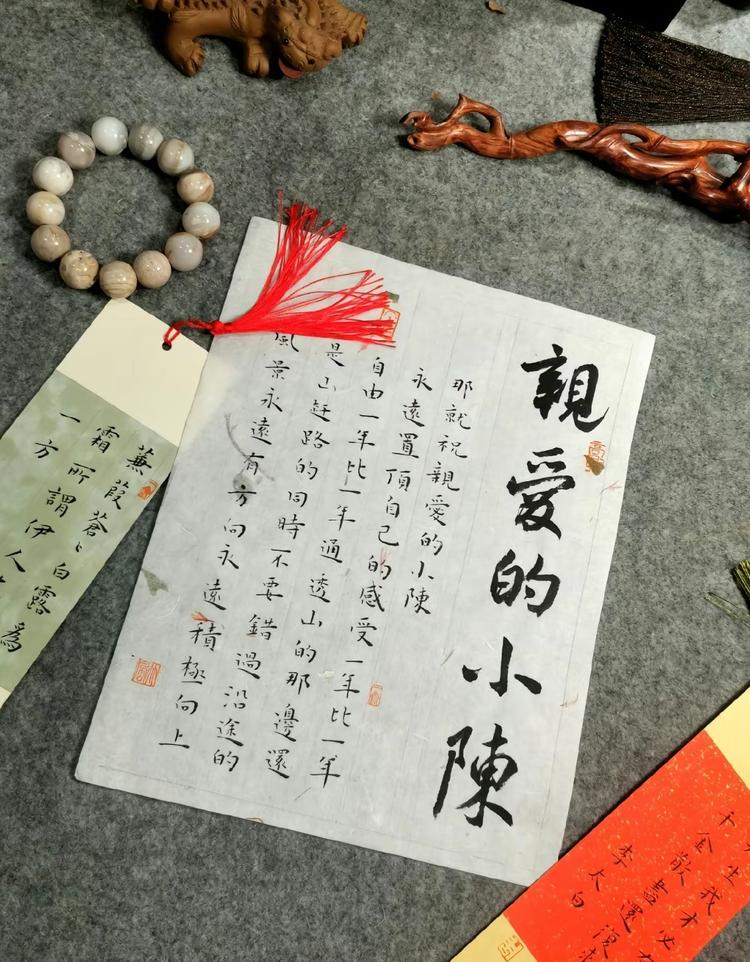 親愛的小陳
那就祝親愛的小陳
永遠置頂自己的感受一年比一年
自由一年比一年通透山的那邊還
是山赶路的同時不要錯過沿途的
風景永遠有方向永遠積極向上
蒹葭蒼〻白露為
霜所謂伊人
一方
生我才必有
千金散盡還復
李太白